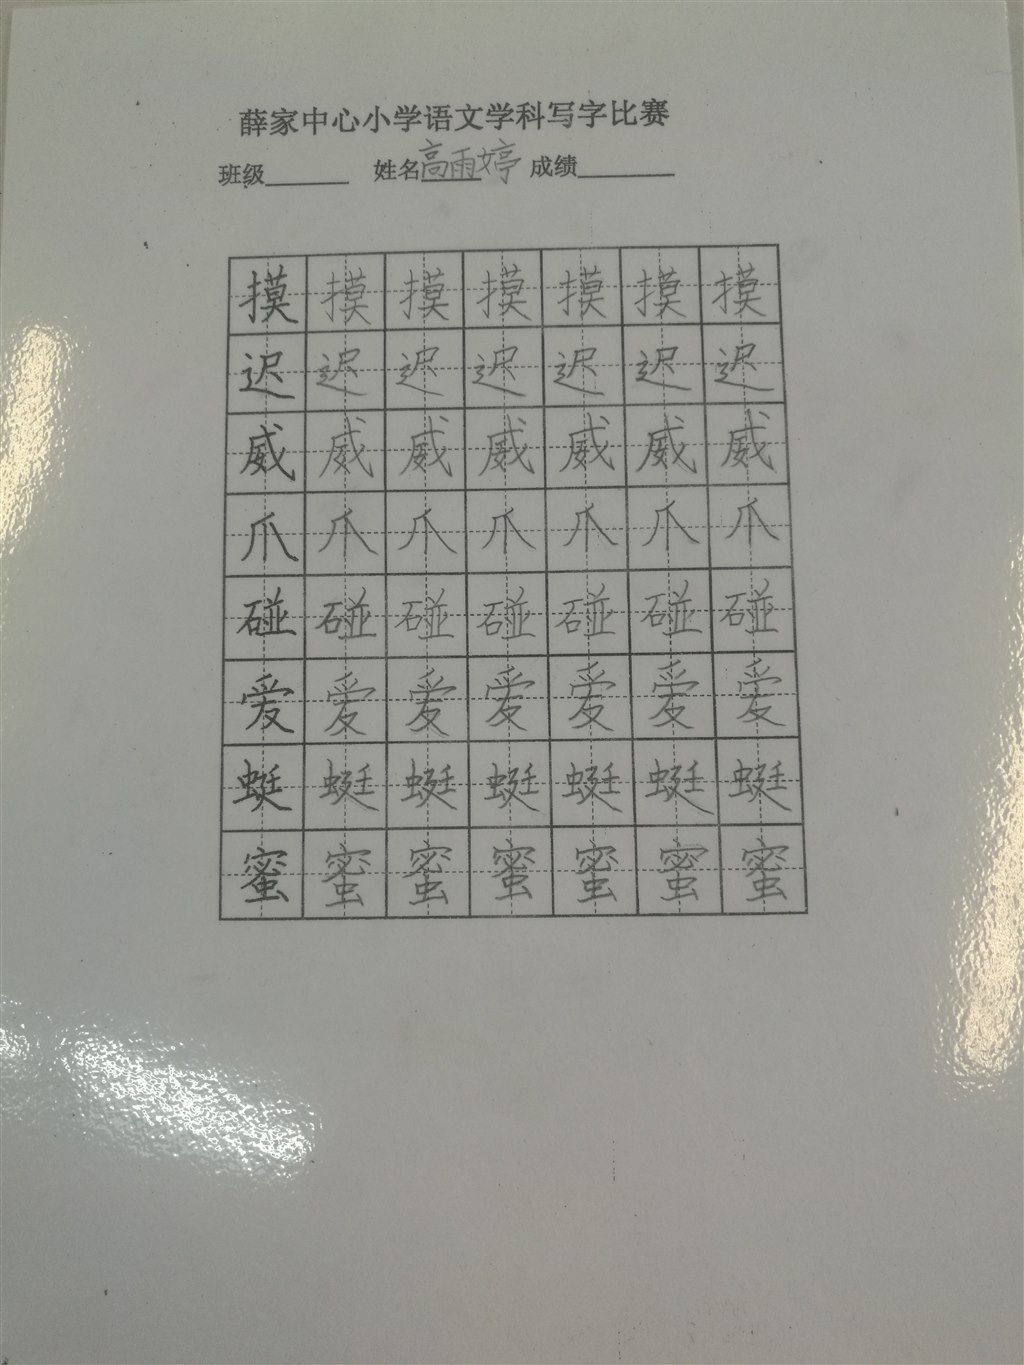 薛家中心小学语文学科写字比赛
班级 姓名高雨婷 成绩
摸摸摸摸摸摸摸
迟迟迟迟迟迟迟
威威威威威威威
爪爪爪爪爪爪爪
碰碰碰碰碰碰碰
爱爱爱爱爱爱爱
蜓蜓蜓蜓蜓蜓蜓
蜜蜜蜜蜜蜜蜜蜜